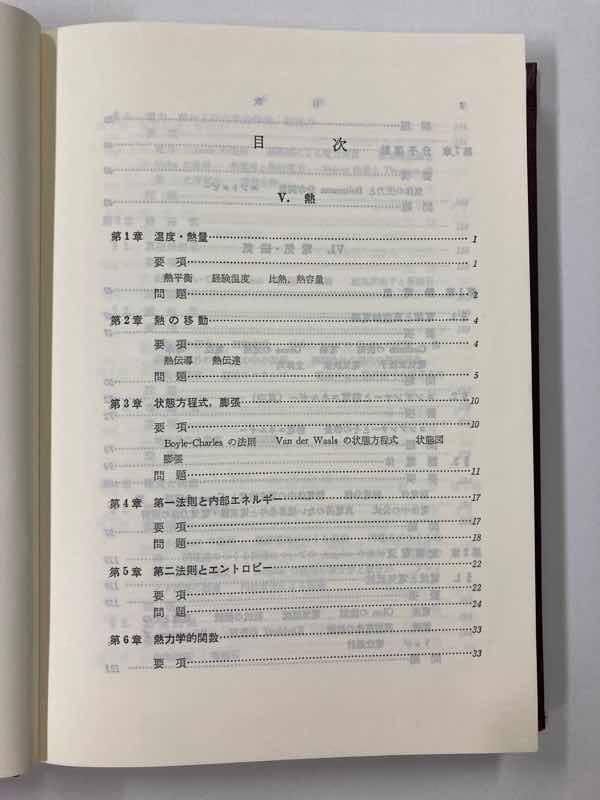 目次
V. 熱
第1章 温度・熱量 1
要項 1
熱平衡 経験温度 比熱, 熱容量
問題 2
第2章 熱の移動 4
要項 4
熱伝導 熱伝達
問題 5
第3章 状態方程式, 膨張 10
要項 10
Boyle-Charles の法則 Van der Waals の状態方程式 状態図
膨張
問題 11
第4章 第一法則と内部エネルギー 17
要項 17
問題 18
第5章 第二法則とエントロピー 22
要項 22
問題 24
第6章 熱力学的関数 33
要項 33